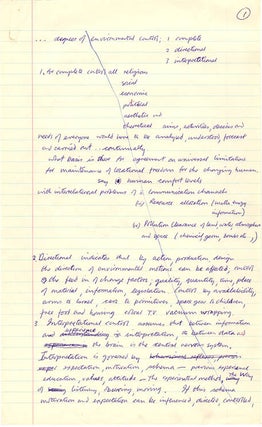 1
... degrees of environmental control; 1 complete
2 directional
3 interpretational
1. As complete control all religious
social
economic
political
aesthetic and
theoretical aims, activities, desires and
needs of everyone would have to be analysed, understood, forecast
and carried out ... continually
what basis is there for agreement on universal limitations
for maintenance of locational freedom for the changing human,
say human comfort levels
with interrelational problems of i. communication channels
(ii) Resource allocation (
information)
(iii) Pollution clearance of land water, atmosphere
and space (chemical, germ,
2 Directional indicates that by action production design
the direction of environmental motions can be affected, control
of the feed in of change factors; quality, quantity, and place
of material information separation (control by availability,
arms to Israel, to primitives, space guns to children,
free food and housing T.V. vacuum wrapping.
3 Interpretational control assumes that between information
and interpretation, ie between data and
the brain is the central nervous system,
Interpretation is governed by
expectation, motivation, schema — previous experience
education, values, attitude — the experiential method, the way
of listening, knowing, moving. If this schema
motivation and expectation can be influenced, directed, controlled,